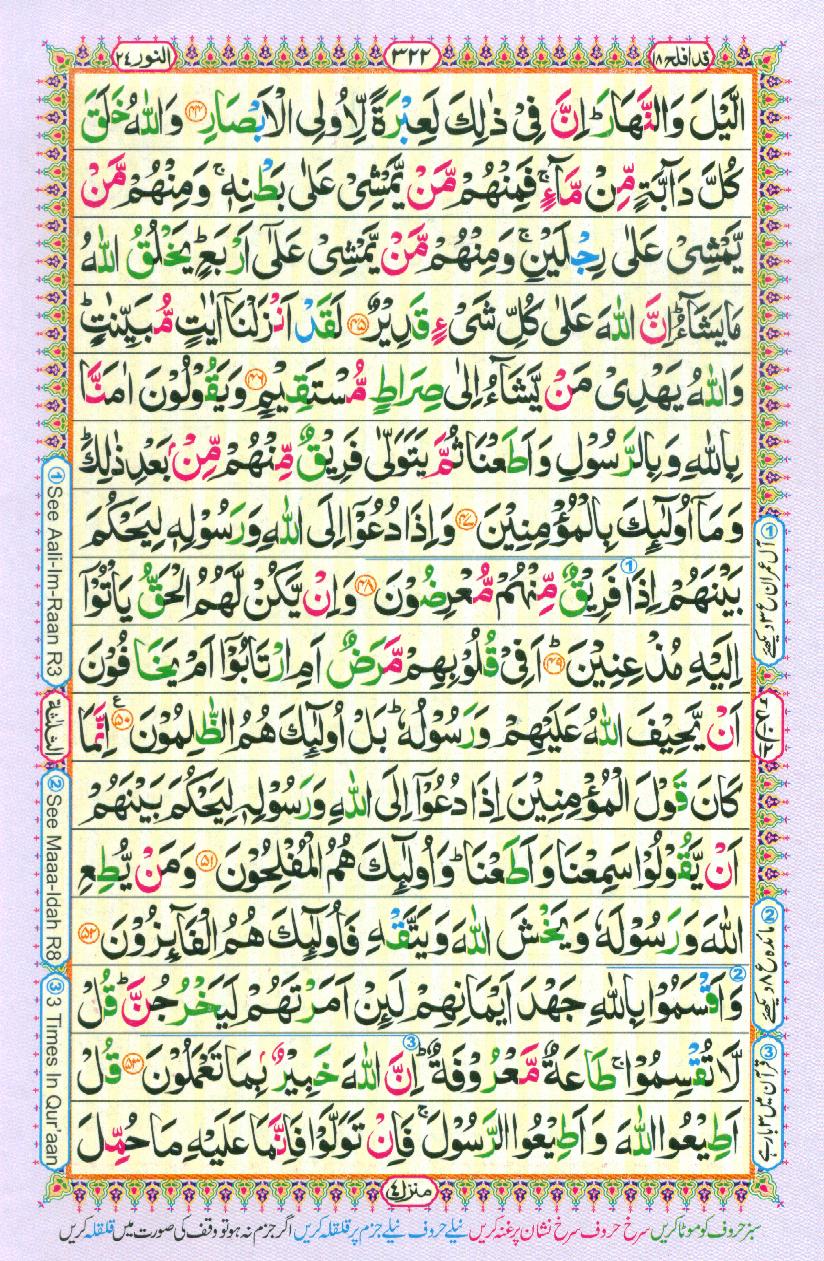 قد افلح ۱۸
۳۲۲
النور ۲۴
الَّیْلَ وَالنَّهَارَ ؕ اِنَّ فِیْ ذٰلِكَ لَعِبْرَةً لِّاُولِی الْاَبْصَارِ ﴿۴۴﴾ وَاللّٰهُ خَلَقَ
كُلَّ دَآبَّةٍ مِّنْ مَّآءٍ ۚ فَمِنْهُمْ مَّنْ یَّمْشِیْ عَلٰی بَطْنِهٖ ۚ وَمِنْهُمْ مَّنْ
یَّمْشِیْ عَلٰی رِجْلَیْنِ ۚ وَمِنْهُمْ مَّنْ یَّمْشِیْ عَلٰۤی اَرْبَعٍ ؕ یَخْلُقُ اللّٰهُ
مَا یَشَآءُ ؕ اِنَّ اللّٰهَ عَلٰی كُلِّ شَیْءٍ قَدِیْرٌ ﴿۴۵﴾ لَقَدْ اَنْزَلْنَاۤ اٰیٰتٍ مُّبَیِّنٰتٍ ؕ
وَاللّٰهُ یَهْدِیْ مَنْ یَّشَآءُ اِلٰی صِرَاطٍ مُّسْتَقِیْمٍ ﴿۴۶﴾ وَیَقُوْلُوْنَ اٰمَنَّا
بِاللّٰهِ وَبِالرَّسُوْلِ وَاَطَعْنَا ثُمَّ یَتَوَلّٰی فَرِیْقٌ مِّنْهُمْ مِّنْۢ بَعْدِ ذٰلِكَ ؕ
وَمَاۤ اُولٰٓئِكَ بِالْمُؤْمِنِیْنَ ﴿۴۷﴾ وَاِذَا دُعُوْۤا اِلَی اللّٰهِ وَرَسُوْلِهٖ لِیَحْكُمَ
بَیْنَهُمْ اِذَا فَرِیْقٌ مِّنْهُمْ مُّعْرِضُوْنَ ﴿۴۸﴾ وَاِنْ یَّكُنْ لَّهُمُ الْحَقُّ یَاْتُوْۤا
اِلَیْهِ مُذْعِنِیْنَ ﴿۴۹﴾ اَفِیْ قُلُوْبِهِمْ مَّرَضٌ اَمِ ارْتَابُوْۤا اَمْ یَخَافُوْنَ
اَنْ یَّحِیْفَ اللّٰهُ عَلَیْهِمْ وَرَسُوْلُهٗ ؕ بَلْ اُولٰٓئِكَ هُمُ الظّٰلِمُوْنَ ﴿۵۰﴾ اِنَّمَا
كَانَ قَوْلَ الْمُؤْمِنِیْنَ اِذَا دُعُوْۤا اِلَی اللّٰهِ وَرَسُوْلِهٖ لِیَحْكُمَ بَیْنَهُمْ
اَنْ یَّقُوْلُوْا سَمِعْنَا وَاَطَعْنَا ؕ وَاُولٰٓئِكَ هُمُ الْمُفْلِحُوْنَ ﴿۵۱﴾ وَمَنْ یُّطِعِ
اللّٰهَ وَرَسُوْلَهٗ وَیَخْشَ اللّٰهَ وَیَتَّقْهِ فَاُولٰٓئِكَ هُمُ الْفَآئِزُوْنَ ﴿۵۲﴾
وَاَقْسَمُوْا بِاللّٰهِ جَهْدَ اَیْمَانِهِمْ لَئِنْ اَمَرْتَهُمْ لَیَخْرُجُنَّ ؕ قُلْ
لَّا تُقْسِمُوْا ۚ طَاعَةٌ مَّعْرُوْفَةٌ ؕ اِنَّ اللّٰهَ خَبِیْرٌۢ بِمَا تَعْمَلُوْنَ ﴿۵۳﴾ قُلْ
اَطِیْعُوا اللّٰهَ وَاَطِیْعُوا الرَّسُوْلَ ۚ فَاِنْ تَوَلَّوْا فَاِنَّمَا عَلَیْهِ مَا حُمِّلَ
① آل عمران ع ۳ دیکھیے
② مائدہ ع ۸ دیکھیے
③ قرآن میں ۳ بار ہے
① See Aali-Im-Raan R3
الثلثة
② See Maaa-Idah R8
③ 3 Times In Qur'aan
منزل ۴
سبز حروف کو موٹا کریں سرخ حروف سرخ نشان پر غنہ کریں نیلے حروف نیلے جزم پر قلقلہ کریں اگر جزم نہ ہو تو وقف کی صورت میں قلقلہ کریں